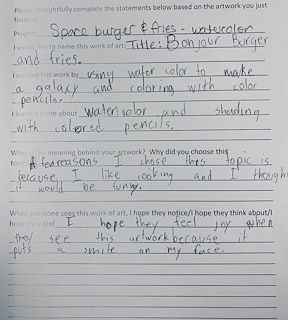 Please thoughtfully complete the statements below based on the artwork you just
finished.
Project: Space burger & fries - watercolor
I would like to name this work of art: Title: Bonjour Burger
and fries.
I created this work by using water color to make
a galaxy and coloring with color
pencils.
I learned more about watercolor and shading
with colored pencils.
What is the meaning behind your artwork? Why did you choose this
topic? A few reasons I chose this topic is
because I like cooking and I though
it would be funny.
When someone sees this work of art, I hope they notice/I hope they think about/I
hope they feel I hope they feel joy when
they see this artwork because it
puts a smile on my face.